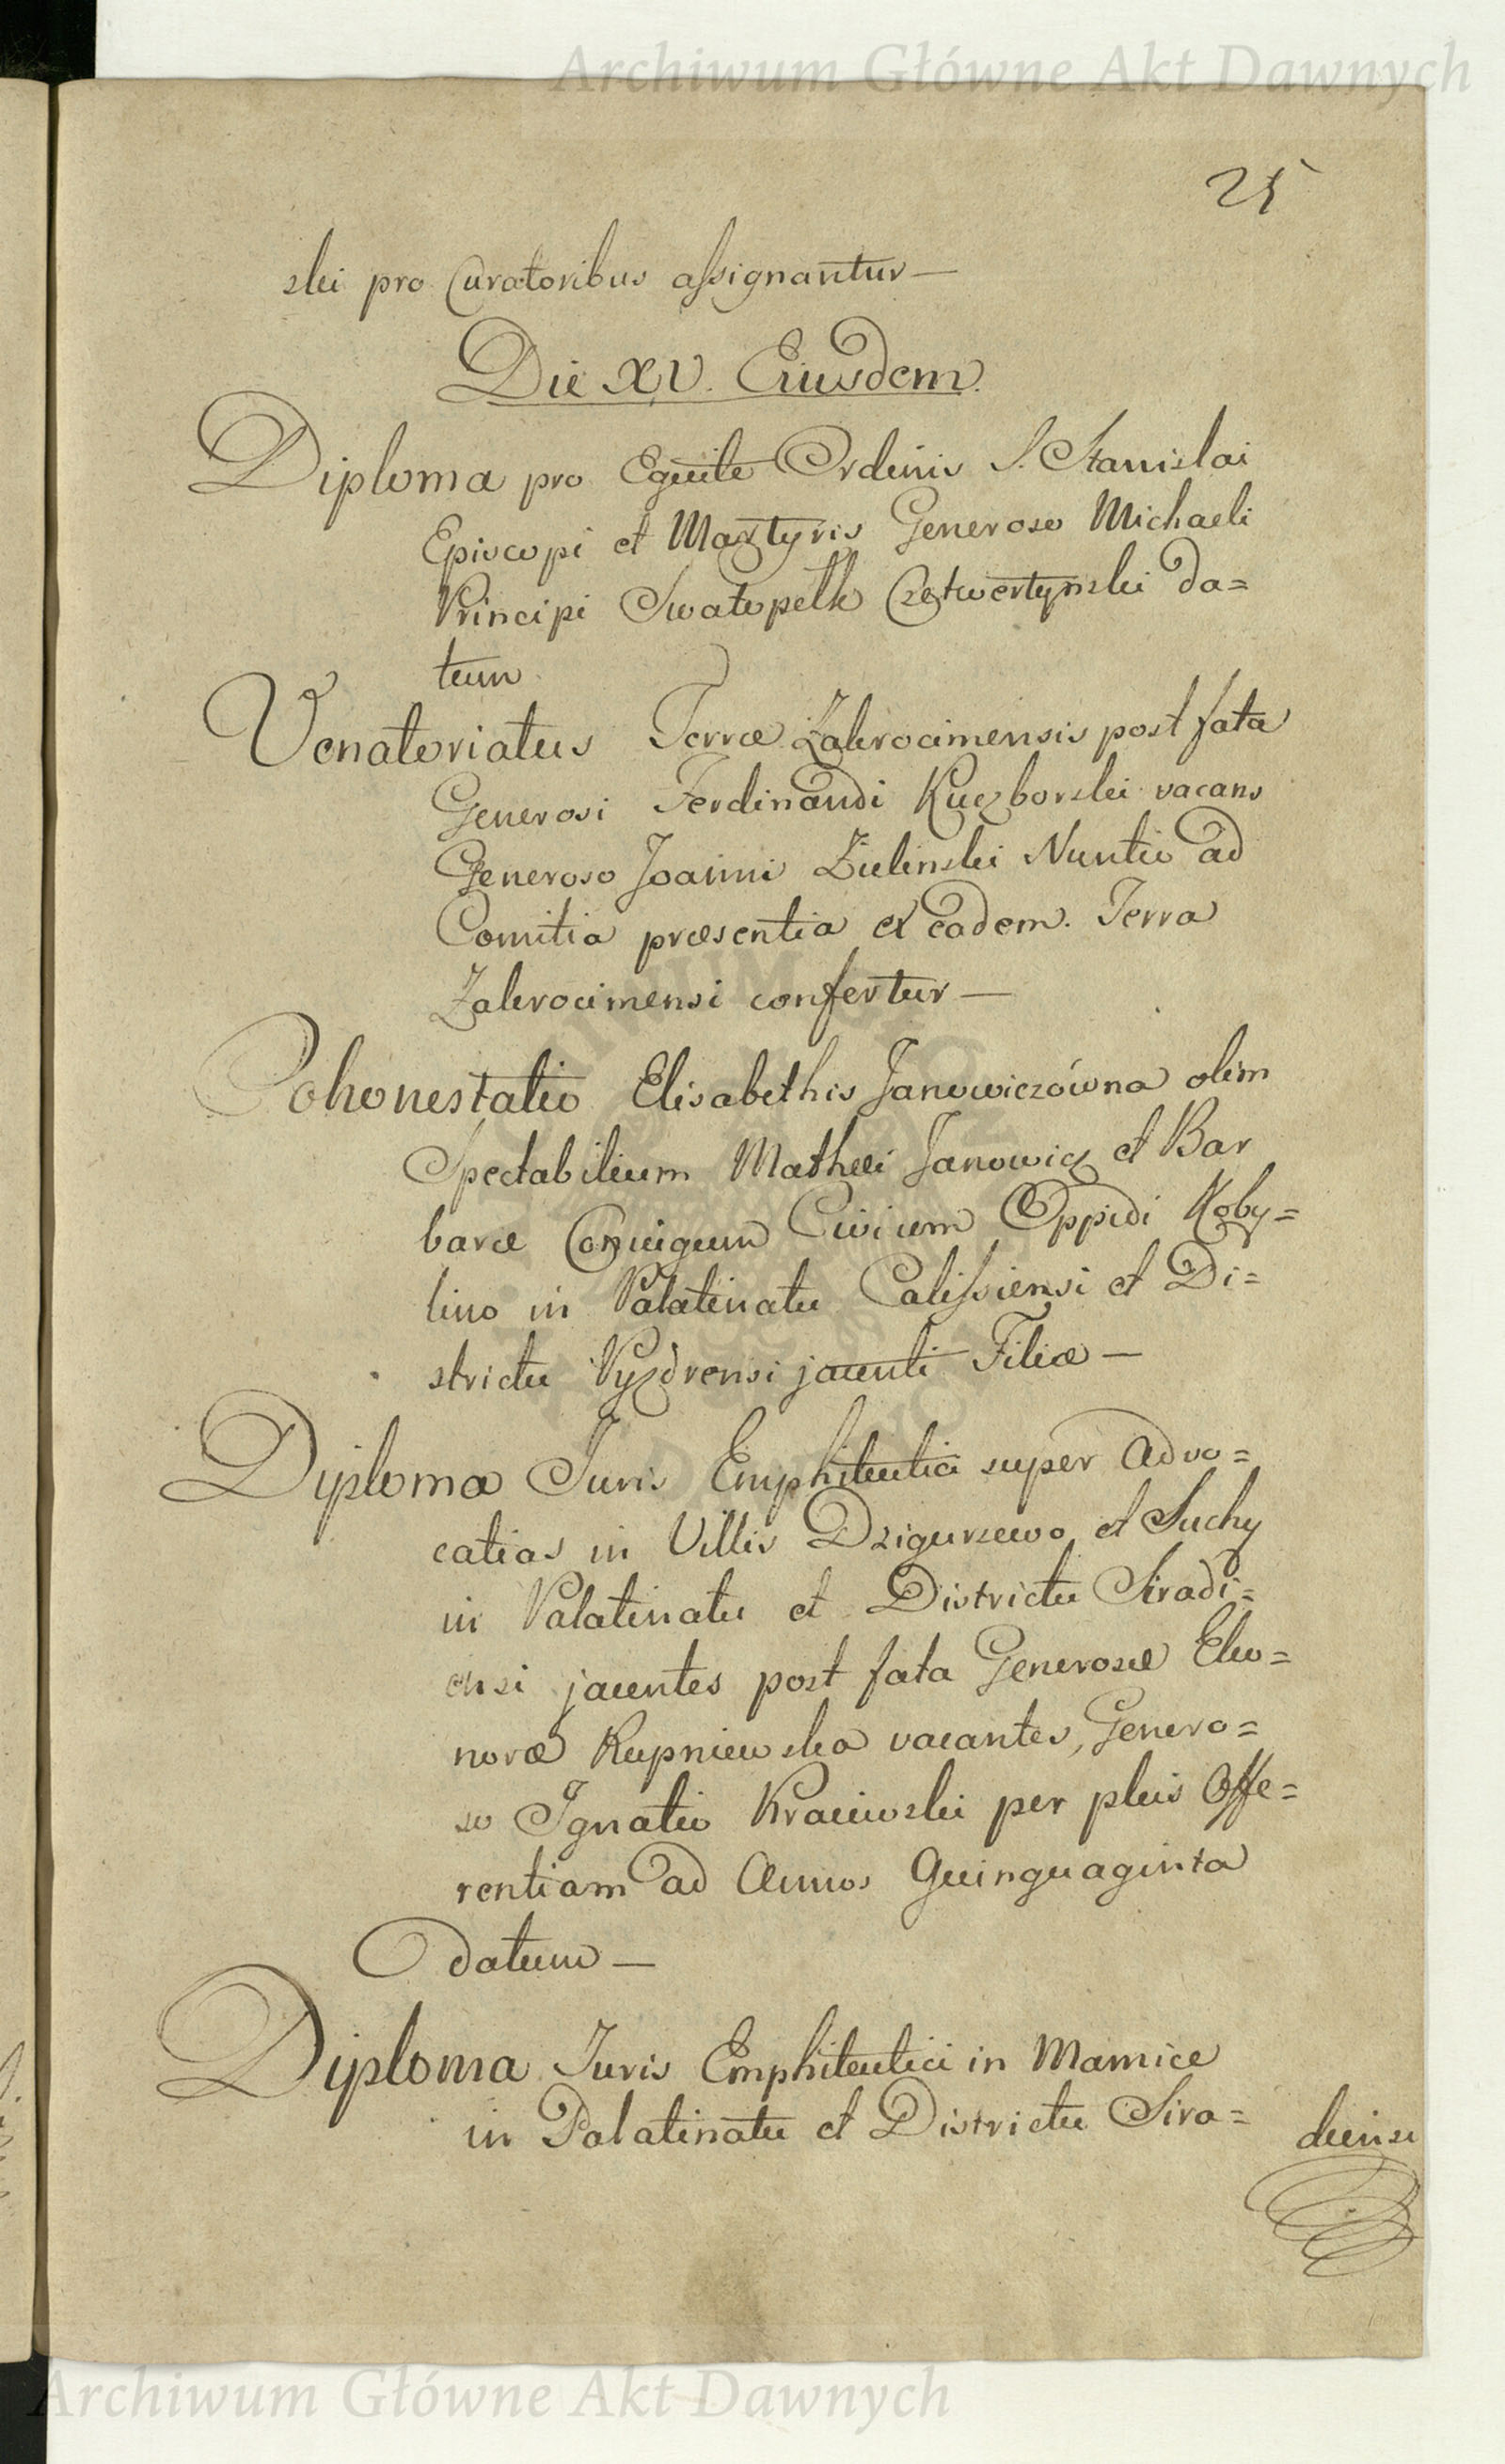 Archiwum Główne Akt Dawnych
25
ski pro Curatoribus assignantur —
Die XV. Eiusdem.
Diploma pro Equite Ordinis S. Stanislai
Episcopi et Martyris Generoso Michaeli
Principi Swatopelk Czetwertynski da=
tum
Venatoriatus Terræ Zakrocimensis post fata
Generosi Ferdinandi Kuczborski vacans
Generoso Joanni Zielinski Nuntio ad
Comitia præsentia ex eadem Terra
Zakrocimensi confertur —
Cohonestatio Elisabethis Janowiczówna olim
Spectabilium Mathei Janowicz et Bar
baræ Conjugum Civium Oppidi Koby=
lino in Palatinatu Calissiensi et Di=
strictu Pyzdrensi jacenti Filiæ —
Diploma Juris Emphiteutici super Advo=
catias in Villis Dzigurzewo et Suchy
in Palatinatu et Districtu Siradi=
ensi jacentes post fata Generosæ Eleo=
noræ Rupniewska vacantes, Genero=
so Ignatio Kraiewski per plus Offe=
rentiam ad Annos Quinquaginta
datum —
Diploma Juris Emphiteutici in Mamice
in Palatinatu et Districtu Sira=
diensi
Archiwum Główne Akt Dawnych